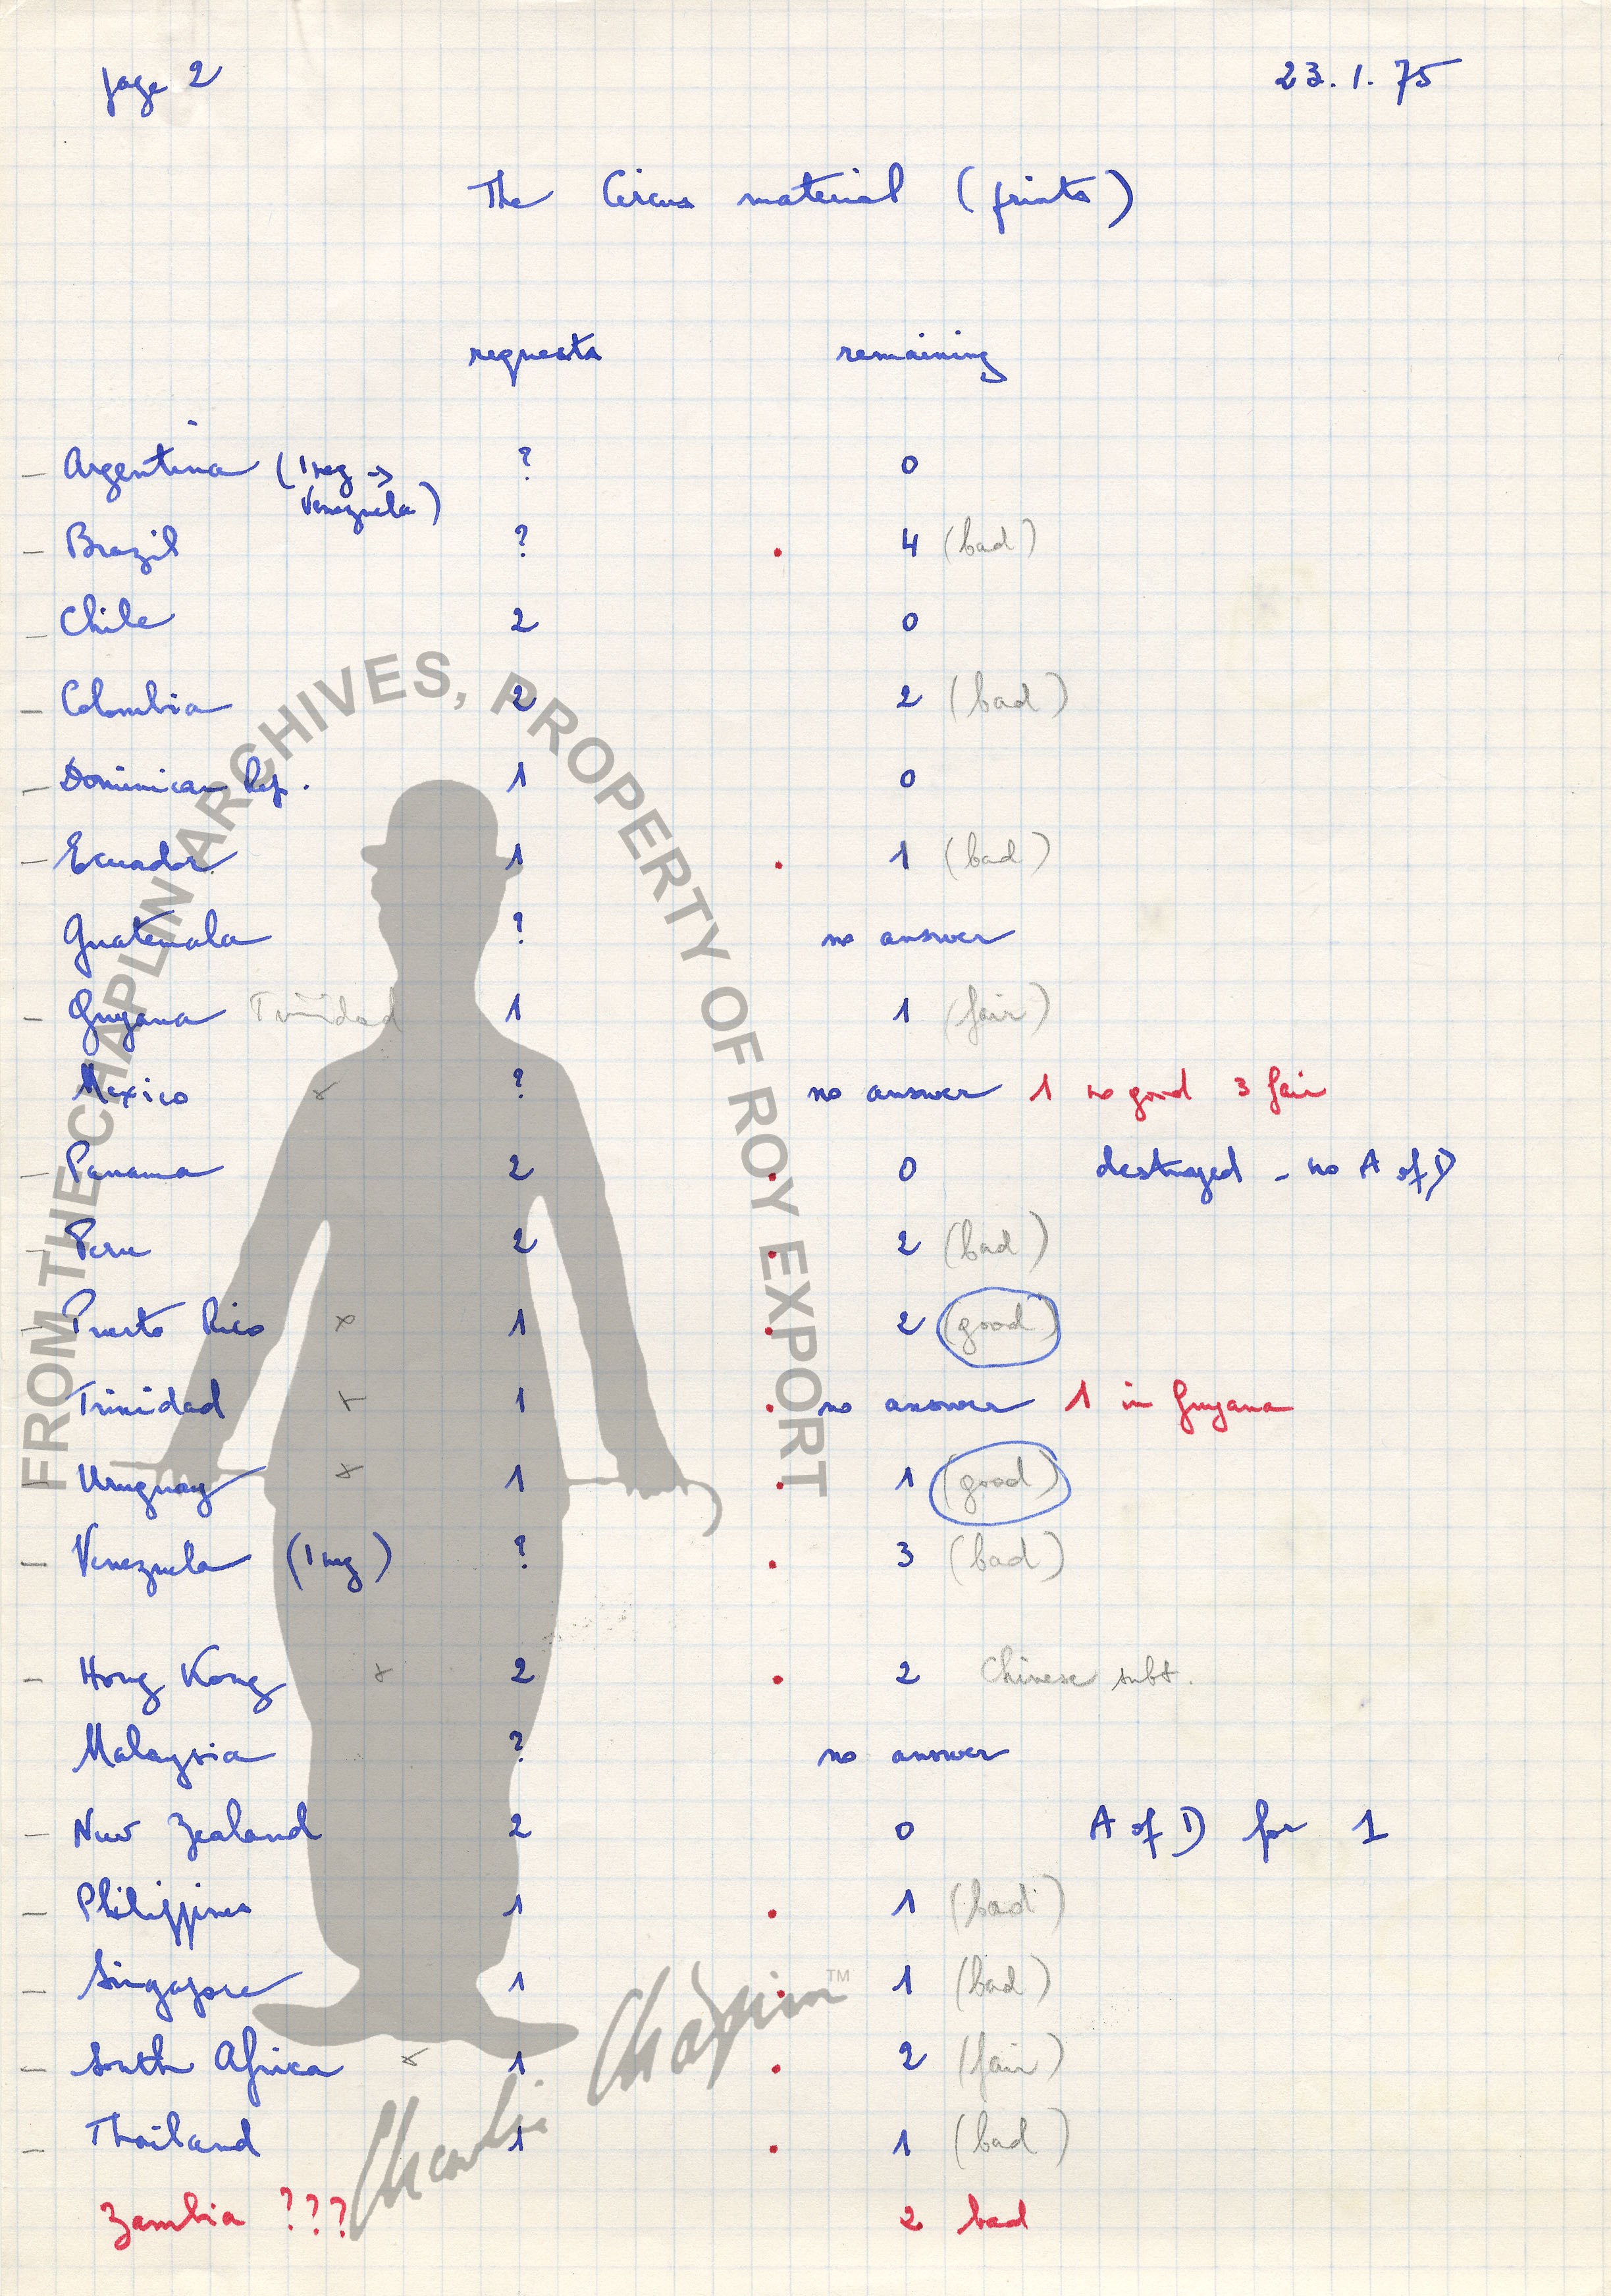 page 2 23.1.75
The Circus material (prints)
requests remaining
- Argentina (1 neg → ? 0
Venezuela)
- Brazil ? . 4 (bad)
- Chile 2 0
- Colombia 2 2 (bad)
- Dominican Rep. 1 0
- Ecuador 1 . 1 (bad)
Guatemala ? no answer
- Guyana Trinidad 1 1 (fair)
Mexico x ? no answer 1 no good 3 fair
- Panama 2 . 0 destroyed - no A of D
- Peru 2 . 2 (bad)
- Puerto Rico x 1 . 2 (good)
Trinidad x 1 . no answer 1 in Guyana
- Uruguay x 1 . 1 (good)
- Venezuela (1 neg) ? . 3 (bad)
- Hong Kong x 2 . 2 Chinese subt.
Malaysia ? no answer
- New Zealand 2 0 A of D for 1
- Philippines 1 . 1 (bad)
- Singapore 1 . 1 (bad)
- South Africa x 1 . 2 (fair)
- Thailand 1 . 1 (bad)
Zambia ??? 2 bad
FROM THE CHAPLIN ARCHIVES, PROPERTY OF ROY EXPORT
Charlie Chaplin TM